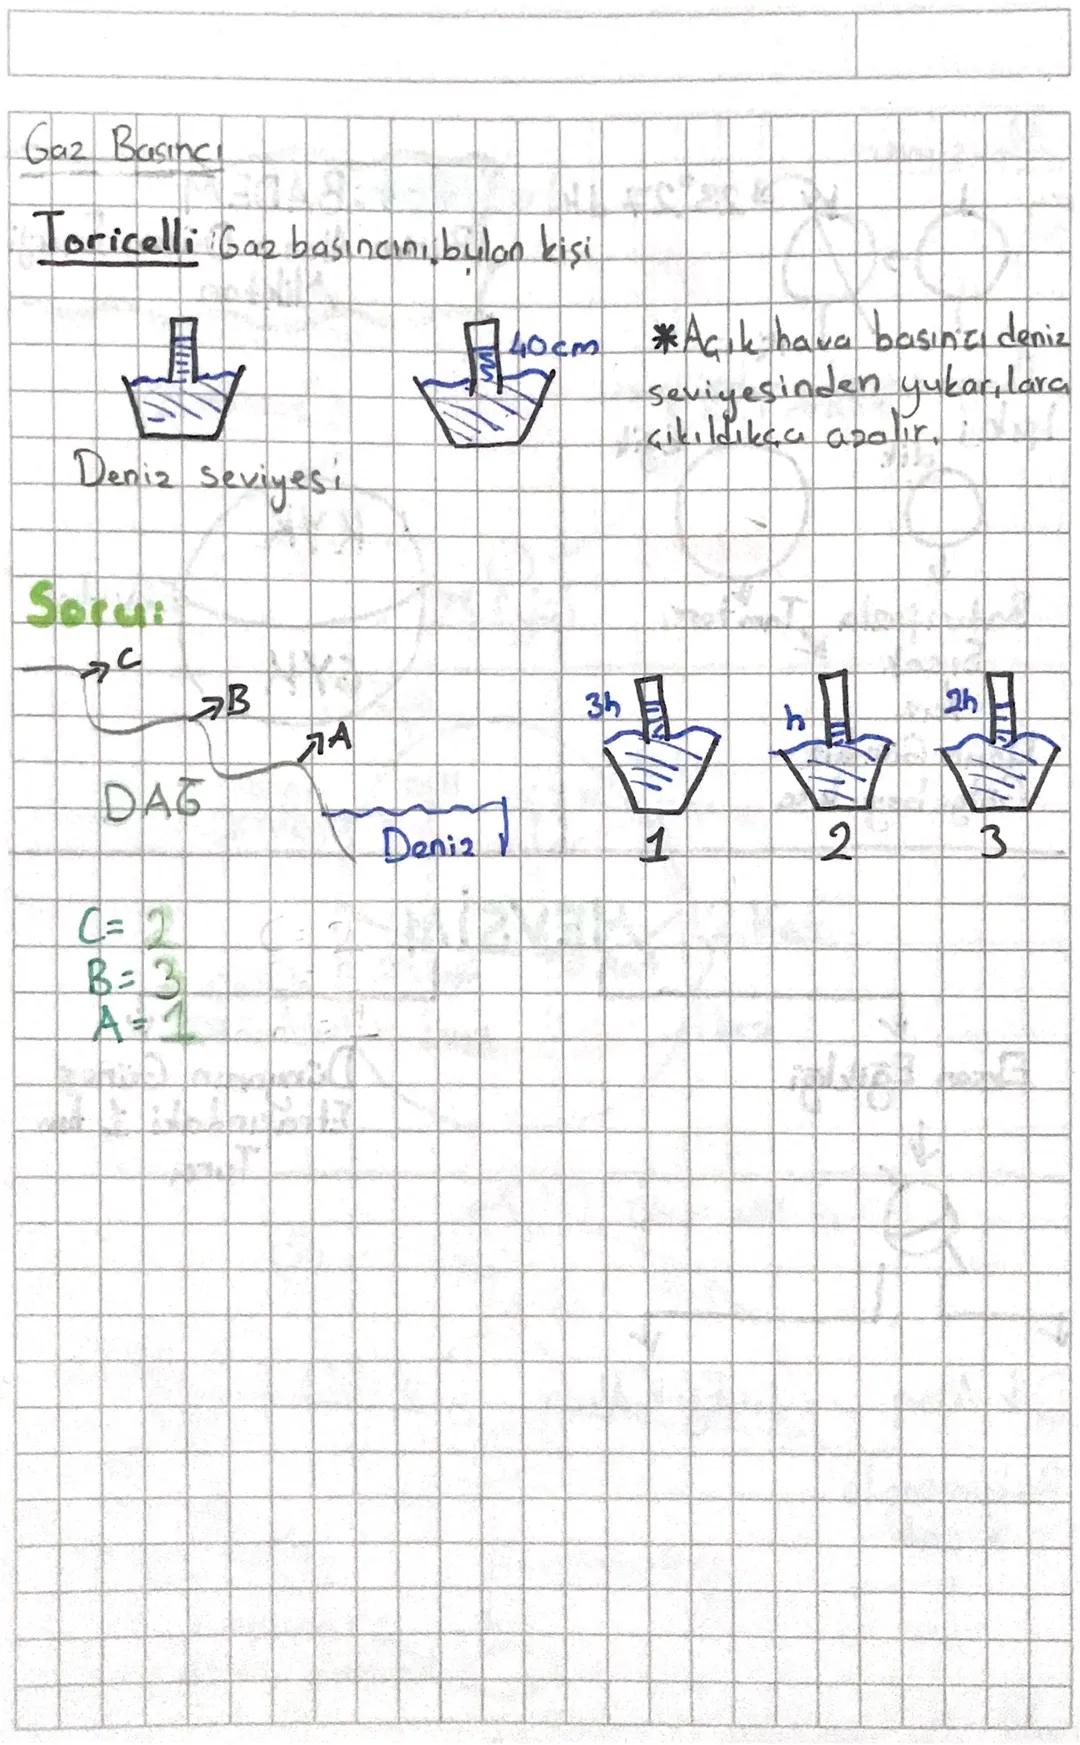 Gaz Basıncı
Toricelli: Gaz basıncını bulan kişi
40cm
*Açık hava basıncı deniz
seviyesinden yukarılara
çıkıldıkça azalır.
Deniz seviyesi
Soru:
C
B
A
DAĞ
Deniz
3h
h
2h
1
2
3
C= 2
B= 3
A= 1